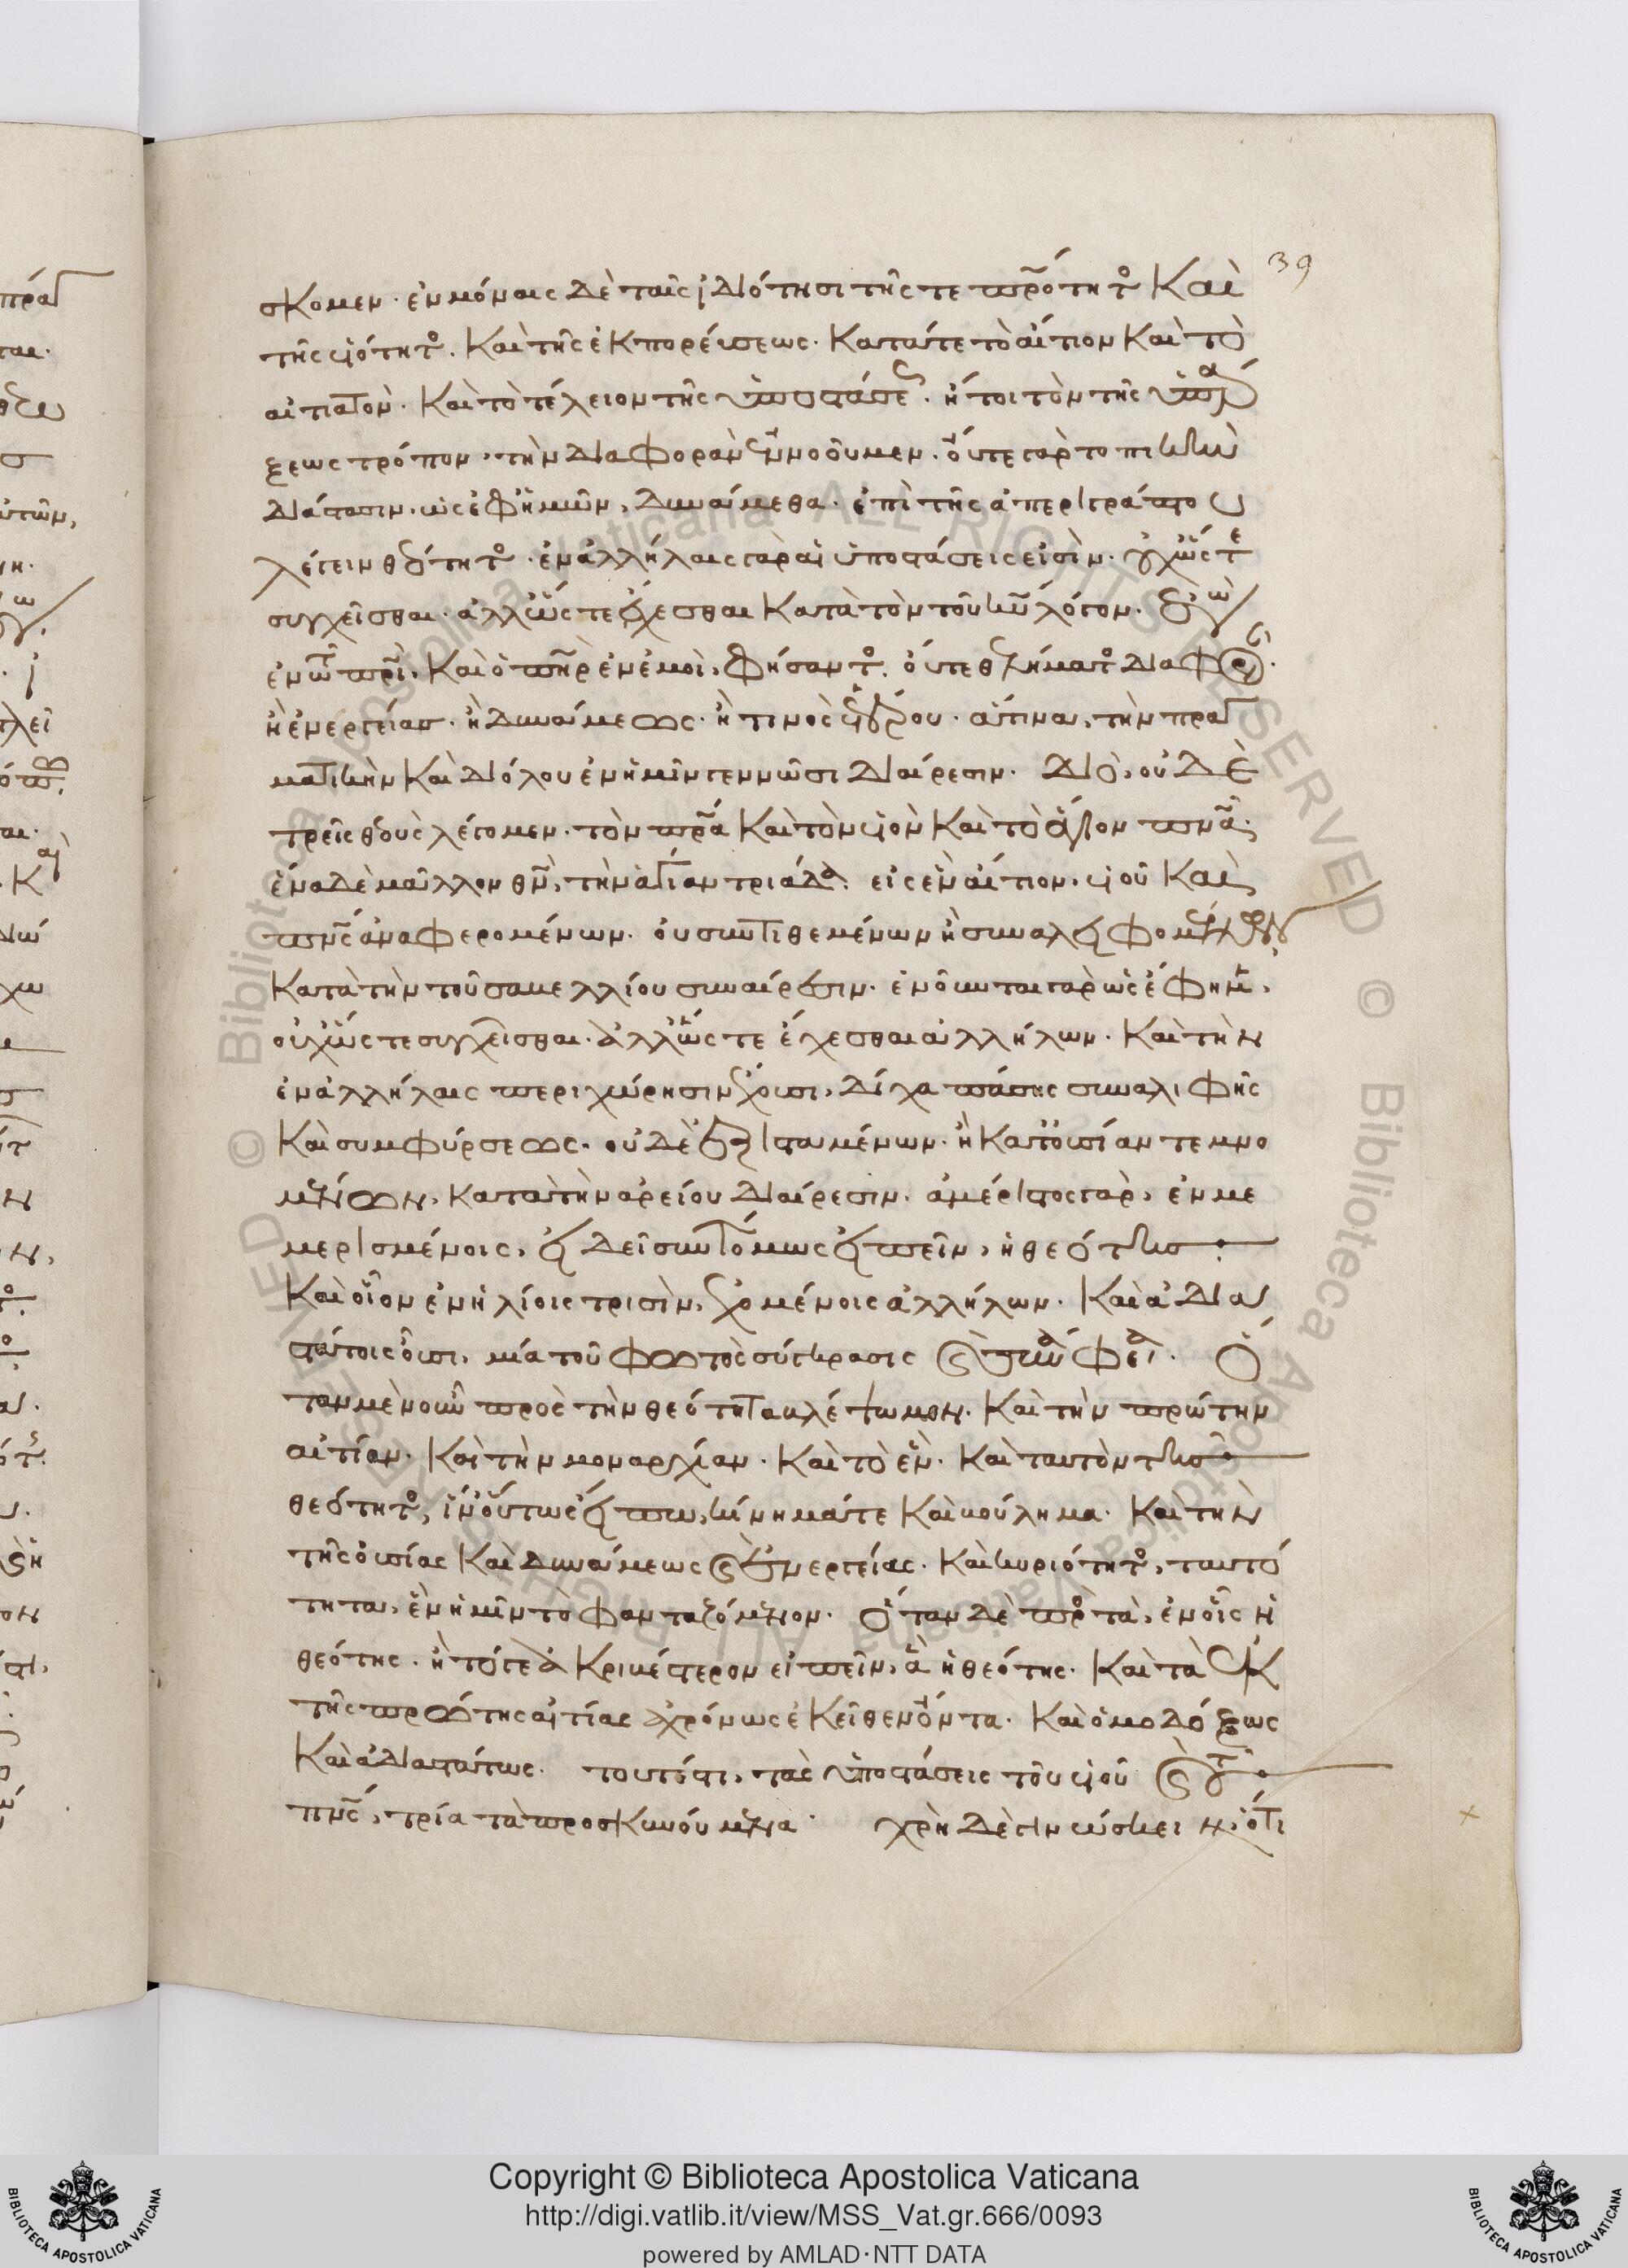 39
σκομεν· ἐν μόναις δὲ ταῖς ἰδιότησι τῆς τε πρότητ καὶ
τῆς υἱότητ. καὶ τῆς ἐκπορεύσεως· κατά τε τὸ αἴτιον καὶ τὸ
αἰτιατόν· καὶ τὸ τέλειον τῆς ὑποστάσε· ἤτοι τὸν τῆς ὑπάρ
ξεως τρόπον, τὴν διαφορὰν ἐννοοῦμεν· οὔτε γὰρ τοπικὴν
διάστασιν, ὡς ἐφ' ἡμῶν, δυνάμεθα· ἐπὶ τῆς ἀπεριγράπτου
λέγειν θεότητ· ἐν ἀλλήλαις γὰρ αἱ ὑποστάσεις εἰσὶν· οὐχ ὥστε
συγχεῖσθαι· ἀλλ' ὥστε ἔχεσθαι κατὰ τὸν τοῦ κυ λόγον· ἐγὼ
ἐν τῶ πρι, καὶ ὁ πηρ ἐν ἐμοὶ, φήσαντ. οὔτε θελήματ διαφο
ἢ ἐνεργείας· ἢ δυνάμεως· ἤ τινος ἑτέρου· ἅτινα, τὴν πραγ
ματικὴν καὶ διόλου ἐν ἡμῖν γεννῶσι διαίρεσιν· διὸ, οὐδὲ
τρεῖς θεοὺς λέγομεν· τὸν πρα καὶ τὸν υἱὸν καὶ τὸ ἅγιον πνα·
ἕνα δὲ μᾶλλον θν, τὴν ἁγίαν τριάδα· εἰς ἓν αἴτιον, υἱοῦ καὶ
πνς ἀναφερομένων· οὐ συντιθεμένων ἢ συναλειφομένων
κατὰ τὴν τοῦ σαβελλίου συναίρεσιν· ἑνοῦνται γὰρ ὡς ἔφημεν,
οὐχ ὥστε συγχεῖσθαι· ἀλλ' ὥστε ἔχεσθαι ἀλλήλων· καὶ τὴν
ἐν ἀλλήλαις περιχώρησιν ἔχουσι, δίχα πάσης συναλιφῆς
καὶ συμφύρσεως· οὐδὲ ἐξισταμένων· ἢ κατ' οὐσίαν τεμνο
μένων, κατὰ τὴν ἀρείου διαίρεσιν· ἀμέριστος γὰρ, ἐν με
μερισμένοις, εἰ δεῖ συντόμως εἰπεῖν, ἡ θεότης·
καὶ οἷον ἐν ἡλίοις τρισὶν, ἐχομένοις ἀλλήλων· καὶ ἀδια
στάτοις οὖσι, μία τοῦ φωτὸς σύγκρασις καὶ συνάφεια· ὅ
ταν μὲν οὖν πρὸς τὴν θεότητα βλέψωμεν· καὶ τὴν πρώτην
αἰτίαν· καὶ τὴν μοναρχίαν· καὶ τὸ ἓν· καὶ ταυτὸν τῆς
θεότητ, ἵν' οὕτως εἴπω, κίνημά τε καὶ βούλημα· καὶ τὴν
τῆς οὐσίας καὶ δυνάμεως καὶ ἐνεργείας· καὶ κυριότητ, ταυτό
τητα, ἓν ἡμῖν τὸ φανταζόμενον· ὅταν δὲ πρὸς τὰ, ἐν οἷς ἡ
θεότης· ἢ τό γε ἀκριβέστερον εἰπεῖν, ἃ ἡ θεότης· καὶ τὰ ἐκ
τῆς πρώτης αἰτίας ἀχρόνως ἐκεῖθεν ὄντα· καὶ ὁμοδόξως
καὶ ἀδιαστάτως· τουτέστι, τὰς ὑποστάσεις τοῦ υἱοῦ καὶ τοῦ
πνς, τρία τὰ προσκυνούμενα· χρὴ δὲ γινώσκειν, ὅτι
Copyright © Biblioteca Apostolica Vaticana
http://digi.vatlib.it/view/MSS_Vat.gr.666/0093
powered by AMLAD·NTT DATA